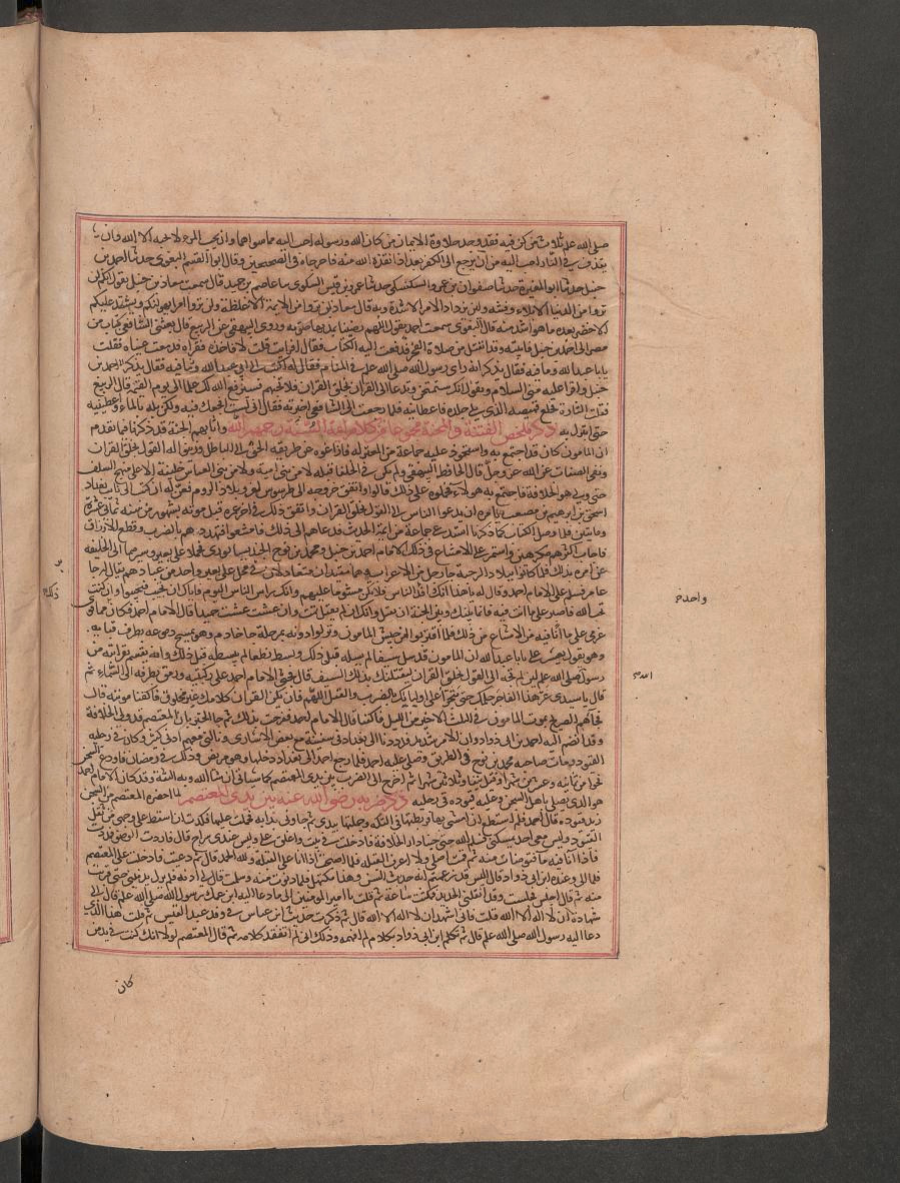 صلى الله عليه ثلاث من كن فيه فقد وجد حلاوة الايمان من كان الله ورسوله احب اليه مما سواهما وان يحب المرء لا يحبه الا لله وان
يقذف في النار احب اليه من ان يرجع الى الكفر بعد اذ انقذه الله منه فاخرجاه في الصحيحين وقال ابو القسم البغوي حدثنا احمد بن
حنبل حدثنا ابو المغيرة حدثنا صفوان بن عمرو السكسكي حدثنا عمرو بن قيس السكوني ثنا عاصم بن حميد قال سمعت معاذ بن جبل يقول انكم لن
تروا من الدنيا الا بلاء وفتنة ولن يزداد الامر الا شدة وبه قال معاذ لن تروا من الايمة الا غلظة ولن تروا امرا يهولنكم ويشتد عليكم
الا حضر بعده ما هو اشد منه قال البغوي سمعت احمد يقول اللهم رضينا وروى البيهقي عن الربيع قال بعثني الشافعي بكتاب من
مصر الى احمد بن حنبل فاتيته وقد انفتل من صلاة الفجر فدفعت اليه الكتاب فقال اقراته قلت لا فاخذه فقراه فدمعت عيناه فقلت
يابا عبد الله وما فيه فقال يذكر انه راى رسول الله صلى الله عليه في المنام فقال له اكتب الى ابي عبد الله فقال احمد بن
حنبل واقرا عليه مني السلام وقل انك ستمتحن وتدعا الى القول بخلق القران فلا تجبهم فسيرفع الله لك علما الى يوم القيمة قال الربيع
فقلت البشارة فخلع قميصه الذي يلي جلده فاعطانيه فلما رجعت الى الشافعي اخبرته فقال اني لست افجعك فيه ولكن بله بالماء واعطينيه
حتى اتبرك به ذكر ملخص الفتنة والمحنة مجموعا من كلام ايمة السنة رحمهم الله واثابهم الجنة قد ذكرنا فيما تقدم
ان المامون كان قد اجتمع به واستحوذ عليه جماعة من المعتزلة فازاغوه عن طريقة الحق الى الباطل وزينوا له القول بخلق القران
ونفي الصفات عن الله عز وجل قال الحافظ البيهقي ولم يكن في الخلفا قبله لا من بني امية ولا من بني العباس خليفة الا على منهج السلف
حتى ولي هو الخلافة فاجتمع به هولاء فحملوه على ذلك قالوا واتفق خروجه الى طرسوس لغزو بلاد الروم فعن له ان كتب الى نايب بغداد
اسحق بن ابراهيم بن مصعب يامره ان يدعوا الناس الى القول بخلق القران واتفق ذلك في اخر عمره قبل موته بشهور من سنة ثماني عشرة
ومايتين فلما وصل الكتاب كما ذكرنا استدعى جماعة من ايمة الحديث فدعاهم الى ذلك فامتنعوا فتهددهم بالضرب وقطع الارزاق
فاجاب اكثرهم مكرهين واستمر على الامتناع في ذلك الامام احمد بن حنبل ومحمد بن نوح الجنديسابوري فحملا على بعير وسيرهما الى الخليفة
عن امره بذلك فلما كانوا ببلاد الرحبة جا رجل من الاعراب وهما مقيدان متعادلان في محمل على بعير واحد من عبادهم يقال له جابر بن
عامر فسلم على الامام احمد وقال له يا هذا انك وافد الناس فلا تكن مشوما عليهم وانك راس الناس اليوم فاياك ان تجيب فيجيبوا وان كنت
تحب الله فاصبر على ما انت فيه فانما بينك وبين الجنة ان تقتل وانك ان لم تقتل تمت وان عشت عشت حميدا قال الامام احمد فكان مما قوى
عزمي على ما انا فيه من الامتناع من ذلك فلما اقتربوا من جيش المامون ونزلوا دونه بمرحلة جا خادم وهو يمسح دموعه بطرف ثيابه
وهو يقول يعز علي يابا عبد الله ان المامون قد سل سيفا لم يسله قبل ذلك وبسط نطعا لم يبسطه قبل ذلك وانه يقسم بقرابته من
رسول الله صلى الله عليه لين لم تجبه الى القول بخلق القران ليقتلنك بذلك السيف قال فجثى الامام احمد على ركبتيه ورمق بطرفه الى السماء ثم
قال يا سيدي غر هذا الفاجر حلمك حتى تجرا على اوليايك بالضرب والقتل اللهم فان يكن القران كلامك غير مخلوق فاكفنا مونته قال
فجاهم الصريخ بموت المامون في الثلث الاخير من الليل قال الامام احمد ففرحت بذلك ثم جا الخبر بان المعتصم قد ولي الخلافة
وقد انضم اليه احمد بن ابي دواد وان الامر شديد فردونا الى بغداد في سفينة مع بعض الاسارى ونالني معهم اذى كثير وكان في رجليه
القيود ومات صاحبه محمد بن نوح في الطريق وصلى عليه احمد فلما رجع احمد الى بغداد دخلها وهو مريض وذلك في رمضان فاودع السجن
نحوا من ثمانية وعشرين شهرا وقيل نيفا وثلاثين شهرا ثم اخرج الى الضرب بين يدي المعتصم كما سياتي ان شا الله وبه الثقة وقد كان الامام احمد
هو الذي يصلي باهل السجن وعليه قيوده في رجليه ذكر ضربه رضي الله عنه بين يدي المعتصم لما احضره المعتصم من السجن
زيد قيوده قال احمد فلم استطع ان امشي بها فربطتها في التكة وحملتها بيدي ثم جاوني بدابة فحملت عليها فكدت ان اسقط على وجهي من ثقل
القيود وليس معي احد يمسكني فسلم الله حتى جينا دار الخلافة فادخلت في بيت واغلق علي وليس عندي سراج قال فاردت الوضو فمددت يدي
فاذا انا فيه ما فتوضات منه ثم قمت اصلي ولا اعرف القبلة فلما اصبحت اذا انا على القبلة ولله الحمد قال ثم دعيت فادخلت على المعتصم
فلما نظر الي وعنده ابن ابي دواد قال اليس قد زعمتم انه حدث السن وهذا شيخ مكتهل فلما دنوت منه وسلمت قال لي ادنه فلم يزل يدنيني حتى قربت
منه ثم قال اجلس فجلست وقد اثقلني الحديد فمكثت ساعة ثم قلت يا امير المومنين الى ما دعا اليه ابن عمك رسول الله صلى الله عليه قال الى
شهادة ان لا اله الا الله قلت فاني اشهد ان لا اله الا الله قال ثم ذكرت حديث ابن عباس في وفد عبد القيس ثم قلت هذا الذي
دعا اليه رسول الله صلى الله عليه قال ثم تكلم ابن ابي دواد بكلام لم افهمه وذلك اني لم اتفقد كلامه ثم قال المعتصم لولا انك كنت في يد من
كان
واحد